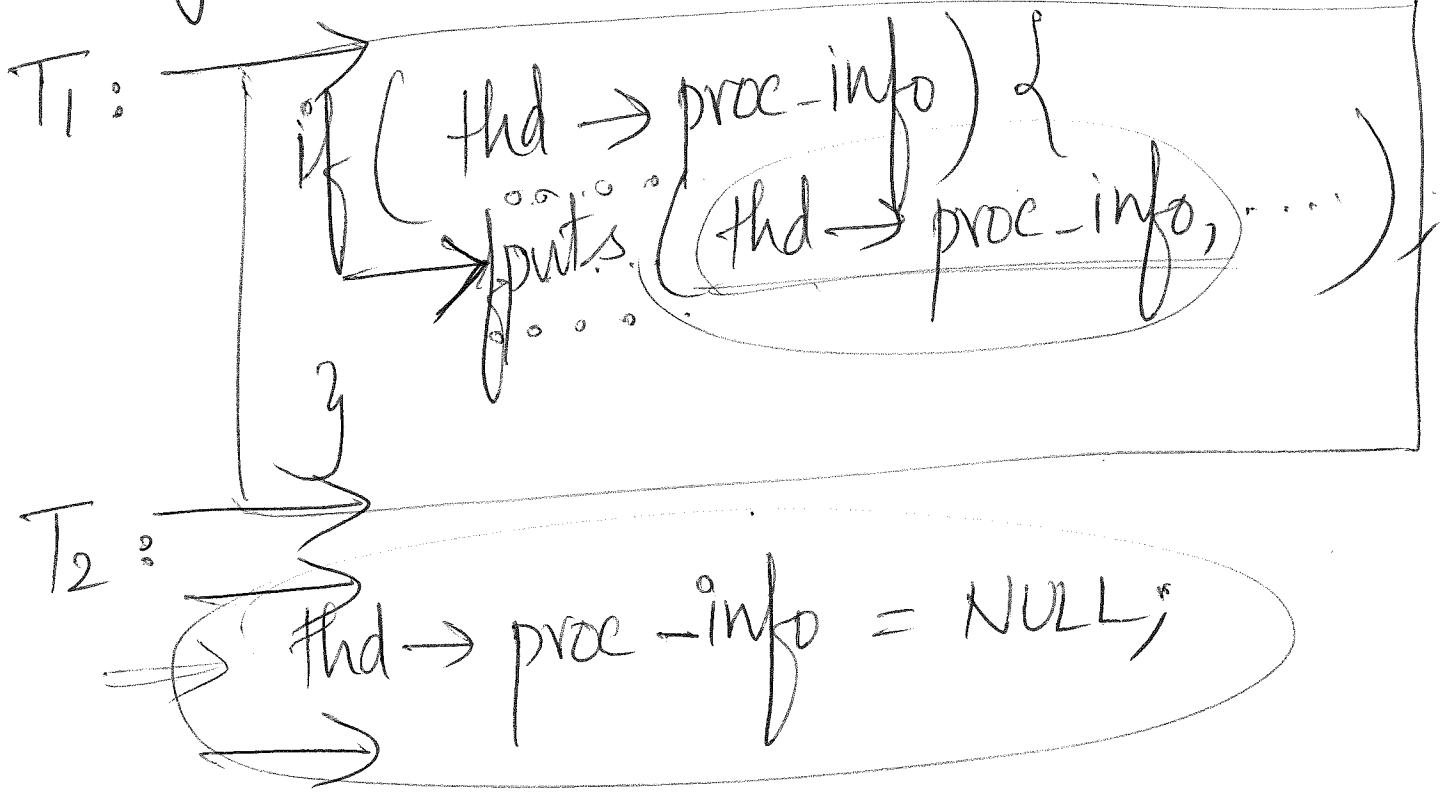 T1: if ( thd → proc-info) {
.....
fputs ( thd → proc-info, ..... );
.....
}
T2:
thd → proc-info = NULL;